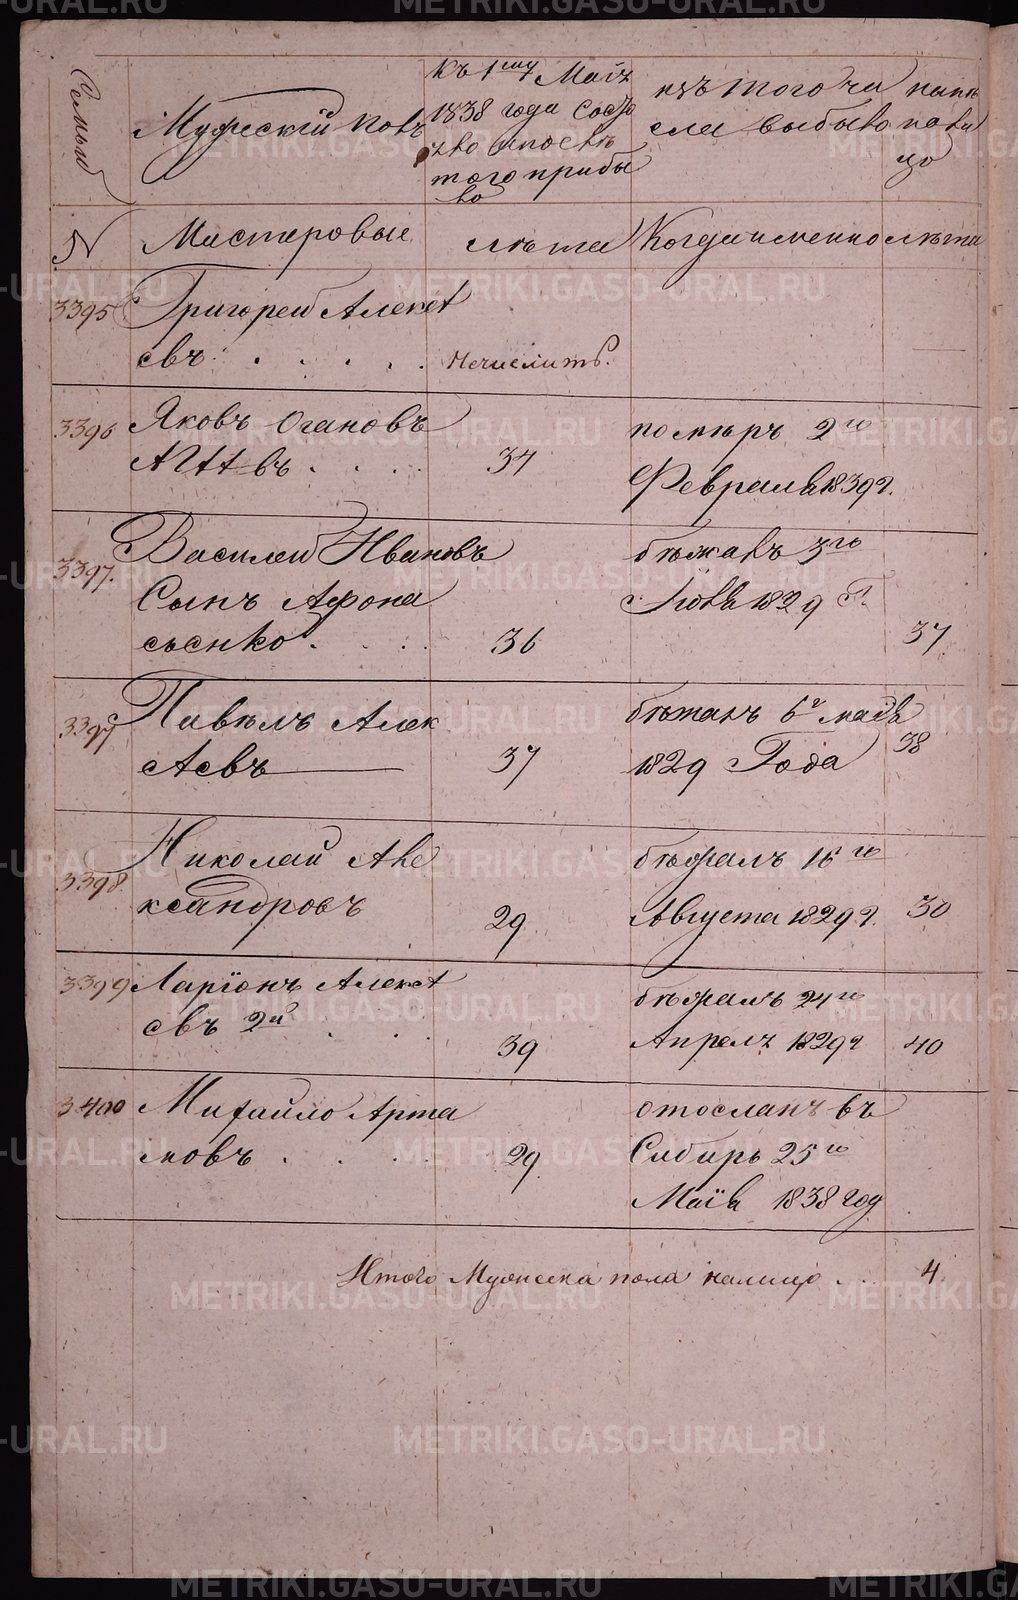 METRIKI.GASO-URAL.RU METRIKI.GASO-URAL.RU
Семьи
Мужескiй полъ
Къ 1му Маiя
1838 года состо
яло и послѣ
того прибы
ло
изъ того чи
сла выбыло
налицо
N
Мастеровые
лѣта
Когда именно
лѣта
3395
Григореи Алексѣ
евъ . . . . .
Нечислить.
3396
Яковъ
въ . . . .
34
помѣръ 2го
Февраля 1839г.
3397.
Василеи Ивановъ
Сынъ Афона
сьенко . . . .
36
бѣжалъ 3го
1829 г.
37
Павѣлъ Алек
37
бѣжалъ 6г маiя
1829 Года
38
3398.
Николай Але
ксандровъ
29
бѣжалъ 16го
Августа 1829г.
30
3399
Ларiонъ Алексѣ
евъ 2й . . .
39
бѣжалъ 24го
Апреля 1829г
40
3400
Михайло Арта
мовъ . . . .
29.
отосланъ въ
Сибирь 25го
Маiя 1838 год
Итого Мужеска пола налицо . . . 4.